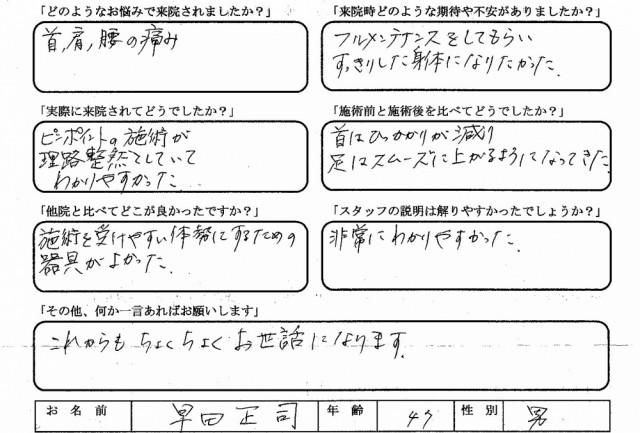 「どのようなお悩みで来院されましたか？」
首,肩,腰の痛み
「来院時どのような期待や不安がありましたか？」
フルメンテナンスをしてもらい
すっきりした身体になりたかった.
「実際に来院されてどうでしたか？」
ピンポイントの施術が
理路整然としていて
わかりやすかった...
「施術前と施術後を比べてどうでしたか？」
首はひっかかりが減り
足はスムーズに上がるようになってきた.
「他院と比べてどこが良かったですか？」
施術を受けやすい体勢にするための
器具がよかった.
「スタッフの説明は解りやすかったでしょうか？」
非常にわかりやすかった.
「その他、何か一言あればお願いします」
これからも ちょくちょく お世話になります.
お名前 早田正司 年齢 47 性別 男